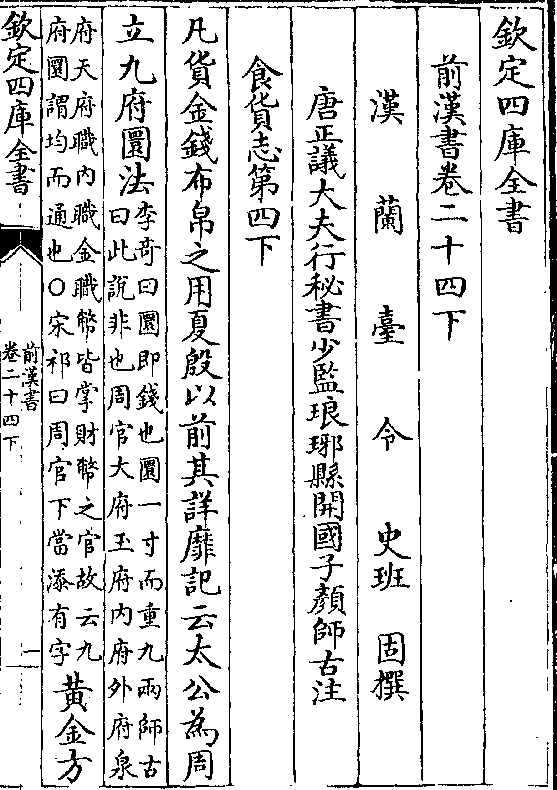 欽定四庫全書
前漢書卷二十四下
漢蘭臺令史班固撰
唐正議大夫行秘書少監琅琊縣開國子顔師古注
食貨志第四下
凡貨金錢布帛之用夏殷以前其詳靡記云太公為周
立九府圜法
李奇曰圜即錢也圜一寸而重九兩師古
曰此說非也周官大府玉府内府外府泉
府天府職内職金職幣皆掌財幣之官故云九
府圜謂均而通也○宋祁曰周官下當添有字
黄金方
欽定四庫全書
前漢書
卷二十四下
一